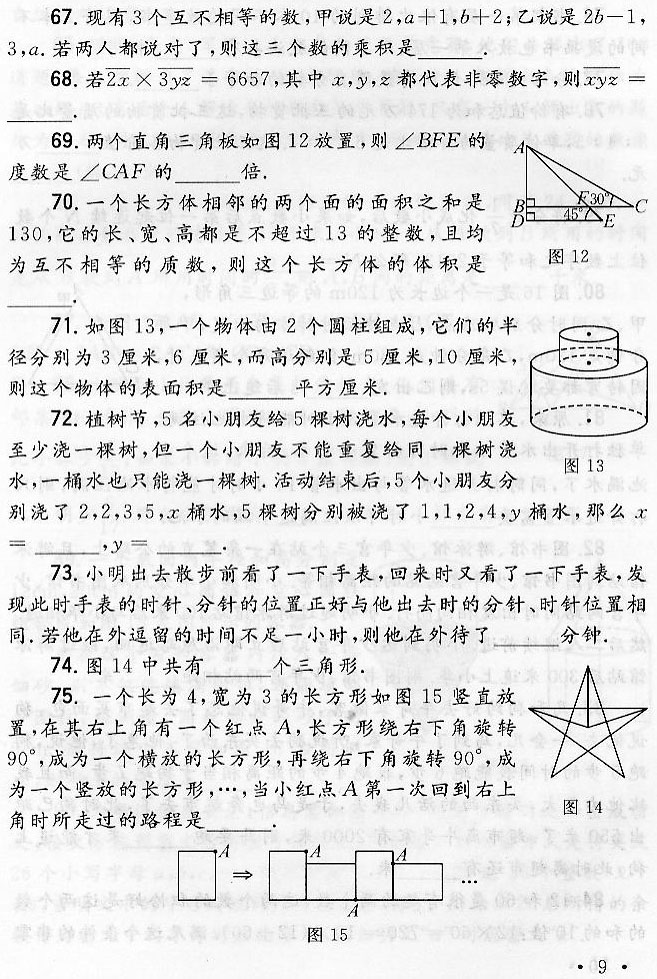 67. 现有3个互不相等的数,甲说是2,a+1,b+2;乙说是2b−1,
3,a. 若两人都说对了,则这三个数的乘积是______.
68. 若2x × 3yz = 6657,其中 x,y,z 都代表非零数字,则xyz =
______.
69. 两个直角三角板如图12放置,则∠BFE的
度数是∠CAF 的______倍.
70. 一个长方体相邻的两个面的面积之和是
130,它的长、宽、高都是不超过 13 的整数,且均
为互不相等的质数,则这个长方体的体积是
______.
A
B
D
F
30°
45°
C
E
图 12
71. 如图 13,一个物体由 2 个圆柱组成,它们的半
径分别为 3 厘米,6 厘米,而高分别是 5 厘米,10 厘米,
则这个物体的表面积是______平方厘米.
图 13
72. 植树节,5 名小朋友给 5 棵树浇水,每个小朋友
至少浇一棵树,但一个小朋友不能重复给同一棵树浇
水,一桶水也只能浇一棵树. 活动结束后,5 个小朋友分
别浇了 2,2,3,5,x 桶水,5 棵树分别被浇了 1,1,2,4,y 桶水,那么 x
= ______,y = ______.
73. 小明出去散步前看了一下手表,回来时又看了一下手表,发
现此时手表的时针、分针的位置正好与他出去时的分针、时针位置相
同. 若他在外逗留的时间不足一小时,则他在外待了______分钟.
74. 图 14 中共有______个三角形.
75. 一个长为 4,宽为 3 的长方形如图 15 竖直放
置,在其右上角有一个红点 A,长方形绕右下角旋转
90°,成为一个横放的长方形,再绕右下角旋转 90°,成
为一个竖放的长方形,…,当小红点 A 第一次回到右上
角时所走过的路程是______.
图 14
A
⇒
A
A
A
…
图 15
· 9 ·